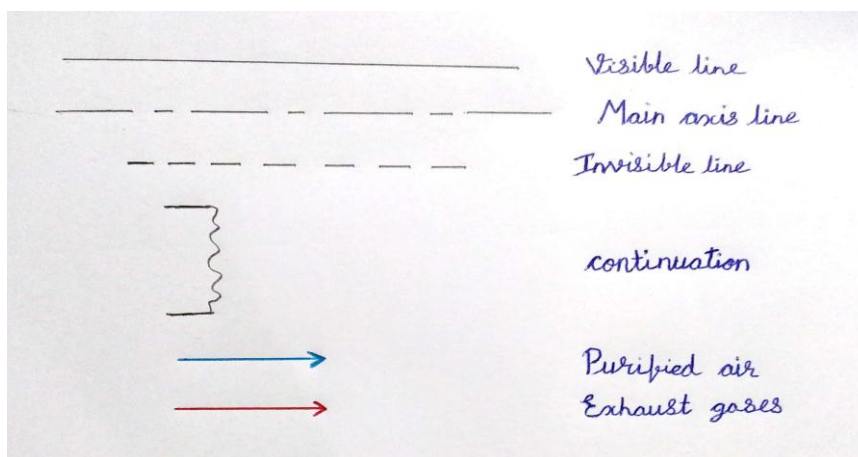 Visible line
Main axis line
Invisible line
continuation
Purified air
Exhaust gases